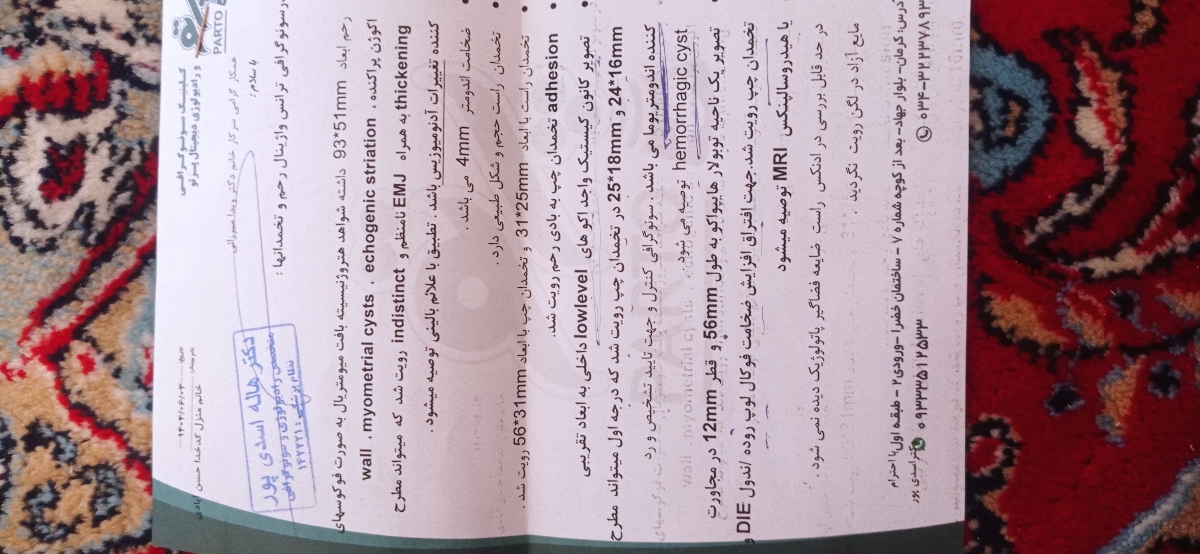 PARTO
کلینیک سونوگرافی
و رادیولوژی دیجیتال پرتو
تاریخ: ۱۴۰۴/۰۶/۰۳
نام بیمار: خانم منزل کدخدا حسن آبادی
همکار گرامی سرکار خانم دکتر ویدا میرزائی
با سلام؛
دکتر هاله اسدی پور
متخصص رادیولوژی و سونوگرافی
نظام پزشکی: ۱۴۲۲۷۱
در سونوگرافی ترانس واژینال رحم و تخمدانها :
رحم ابعاد 93*51mm داشته شواهد هتروژنیسیته بافت میومتریال به صورت فوکوسهای
اکوژن پراکنده ، wall ، myometrial cysts ، echogenic striation
thickening به همراه EMJ نامنظم و indistinct رویت شد که میتواند مطرح
کننده تغییرات آدنومیوزیس باشد . تطبیق با علائم بالینی توصیه میشود .
ضخامت اندومتر 4mm می باشد .
تخمدان راست حجم و شکل طبیعی دارد .
تخمدان راست با ابعاد 31*25mm و تخمدان چپ با ابعاد 56*31mm رویت شد .
adhesion تخمدان چپ به بادی رحم رویت شد.
تصویر کانون کیستیک واجد اکو های lowlevel داخلی به ابعاد تقریبی
24*16mm و 25*18mm در تخمدان چپ رویت شد که درجه اول میتواند مطرح
کننده اندومتریوما می باشد . سونوگرافی کنترل و جهت تایید تشخیص و رد
hemorrhagic cyst توصیه می شود .
تصویر یک ناحیه توبولار هایپواکو به طول 56mm و قطر 12mm در مجاورت
تخمدان چپ رویت شد.جهت افتراق افزایش ضخامت فوکال لوپ روده /ندول DIE و
یا هیدروسالپنکس MRI توصیه میشود
در حد قابل بررسی در ادنکس راست ضایعه فضاگیر پاتولوژیک دیده نمی شود .
مایع آزاد در لگن رویت نگردید .
با احترام
دکتر اسدی پور
آدرس: کرمان- بلوار جهاد- بعد از کوچه شماره ۷ - ساختمان خضرا -ورودی ۲ - طبقه اول
۰۳۴-۳۲۲۳۷۸۹۳
۰۹۳۳۳۵۱۲۵۳۳